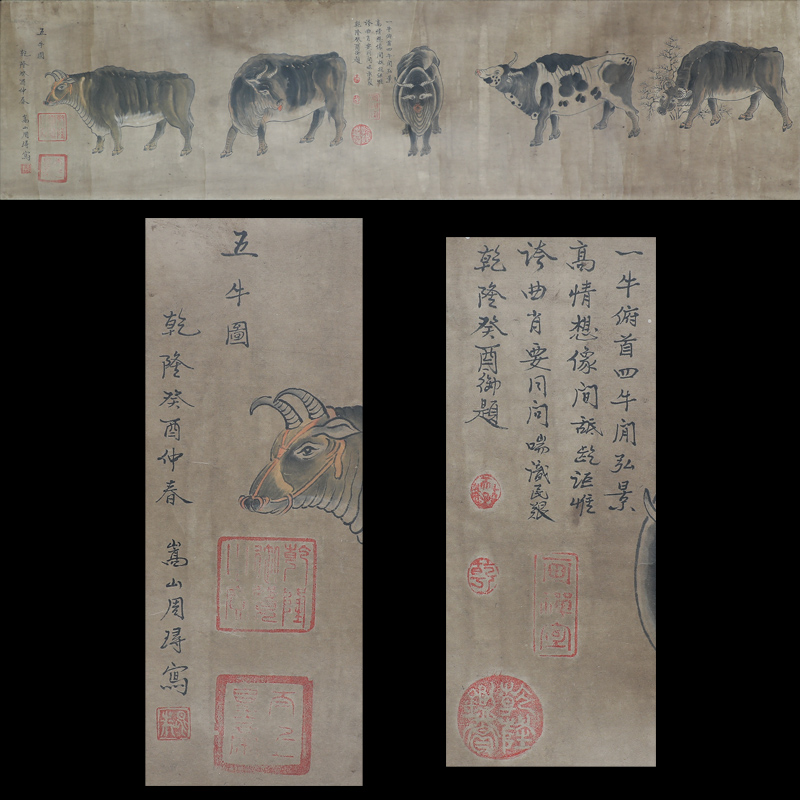 五牛圖
乾隆癸酉仲春 嵩山周璕寫
一牛俯首四牛閒弘景
高情想像間舐齕詎惟
誇曲肖要因問喘識民艱
乾隆癸酉御題